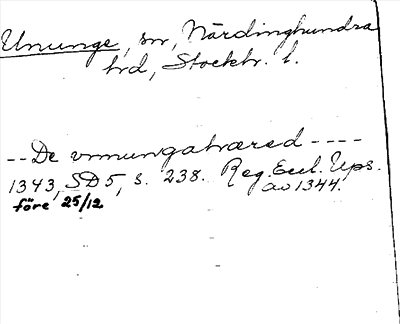 Ununge, sn, Närdinghundra
hd, Stockh. l.
--De vnungahæred----
1343, SD5, s. 238. Reg. Eccl. Ups.
av 1344.
före 25/12